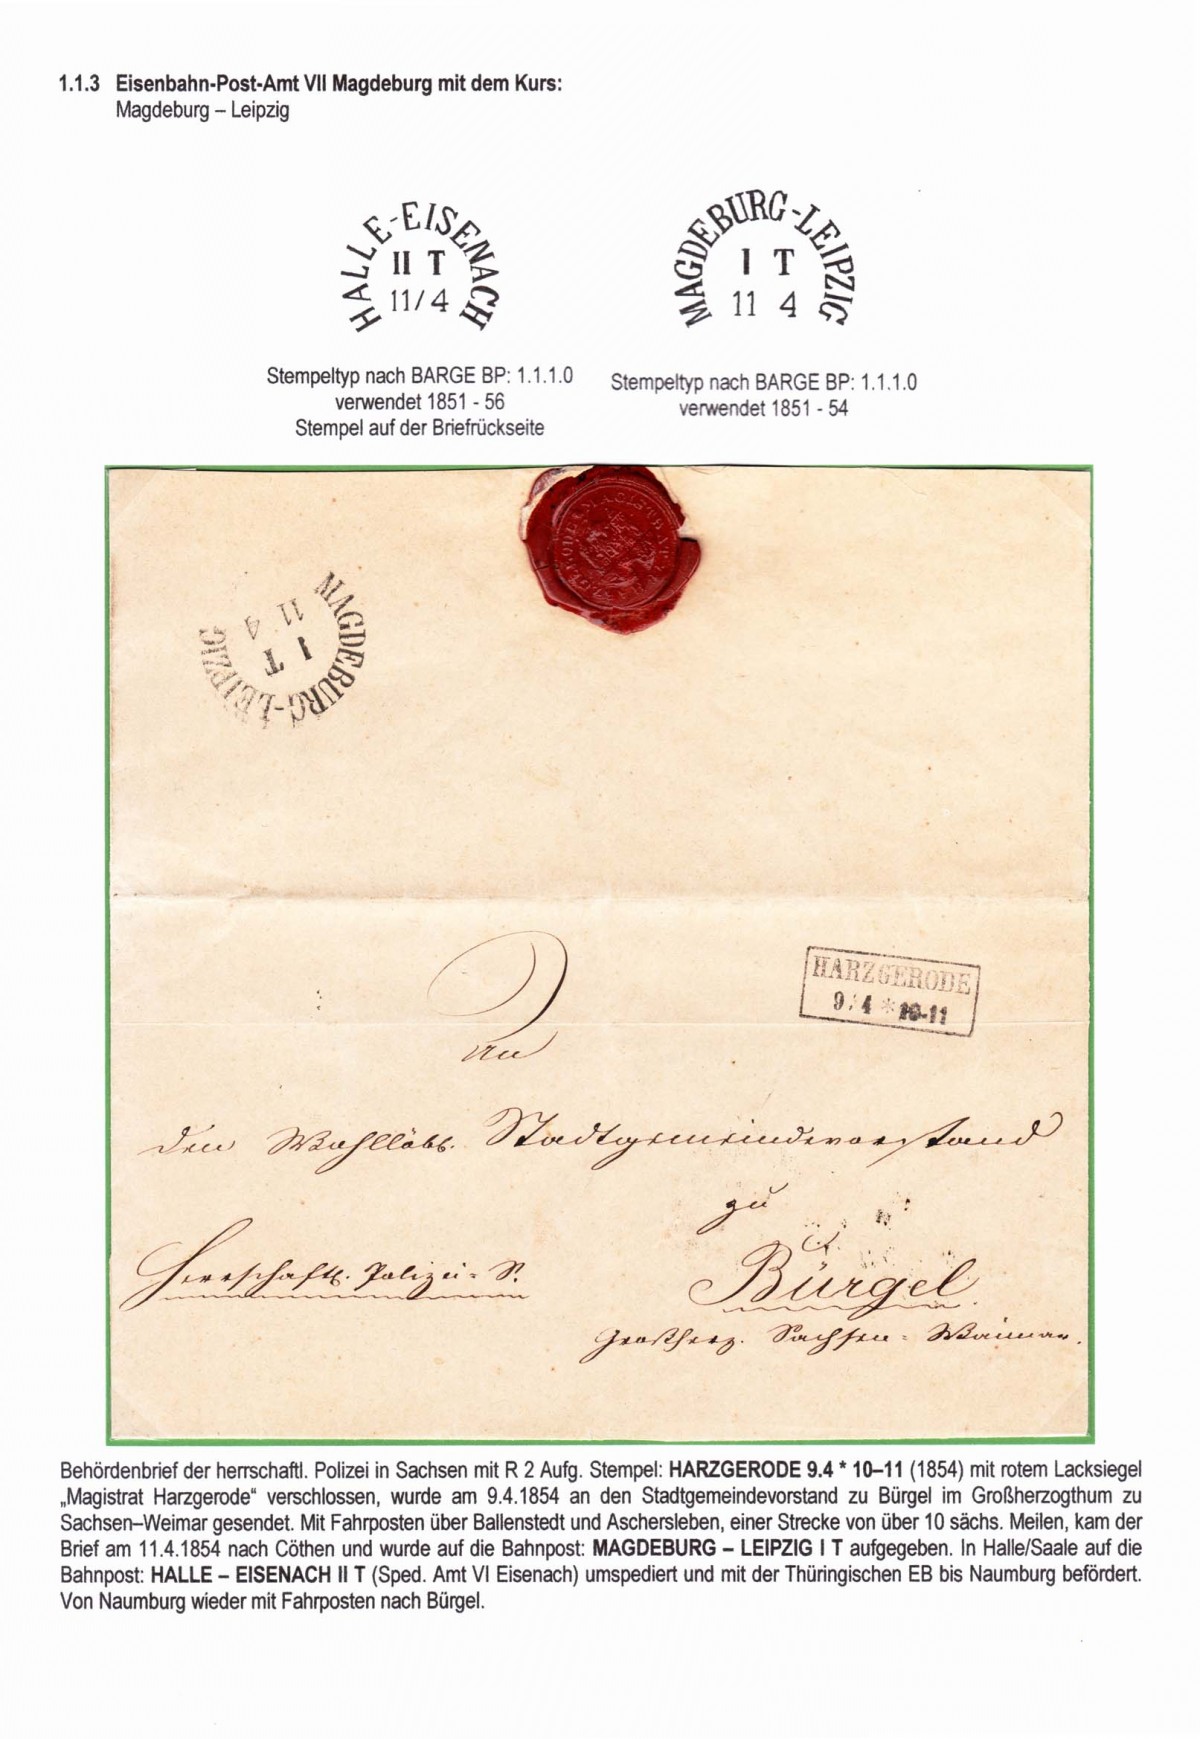 1.1.3 Eisenbahn-Post-Amt VII Magdeburg mit dem Kurs:
Magdeburg – Leipzig
HALLE-EISENACH
II T
11/4
MAGDEBURG-LEIPZIG
I T
11 4
Stempeltyp nach BARGE BP: 1.1.1.0
verwendet 1851 - 56
Stempel auf der Briefrückseite
Stempeltyp nach BARGE BP: 1.1.1.0
verwendet 1851 - 54
MAGISTRAT
MAGDEBURG-LEIPZIG
I T
11 4
HARZGERODE
9.4 * 10-11
An
den Wohllöbl. Stadtgemeindevorstand
zu
Bürgel
Herrschaftl. Polizei-S.
Großherz. Sachsen-Weimar.
Behördenbrief der herrschaftl. Polizei in Sachsen mit R 2 Aufg. Stempel: HARZGERODE 9.4 * 10–11 (1854) mit rotem Lacksiegel
„Magistrat Harzgerode“ verschlossen, wurde am 9.4.1854 an den Stadtgemeindevorstand zu Bürgel im Großherzogthum zu
Sachsen–Weimar gesendet. Mit Fahrposten über Ballenstedt und Aschersleben, einer Strecke von über 10 sächs. Meilen, kam der
Brief am 11.4.1854 nach Cöthen und wurde auf die Bahnpost: MAGDEBURG – LEIPZIG I T aufgegeben. In Halle/Saale auf die
Bahnpost: HALLE – EISENACH II T (Sped. Amt VI Eisenach) umspediert und mit der Thüringischen EB bis Naumburg befördert.
Von Naumburg wieder mit Fahrposten nach Bürgel.